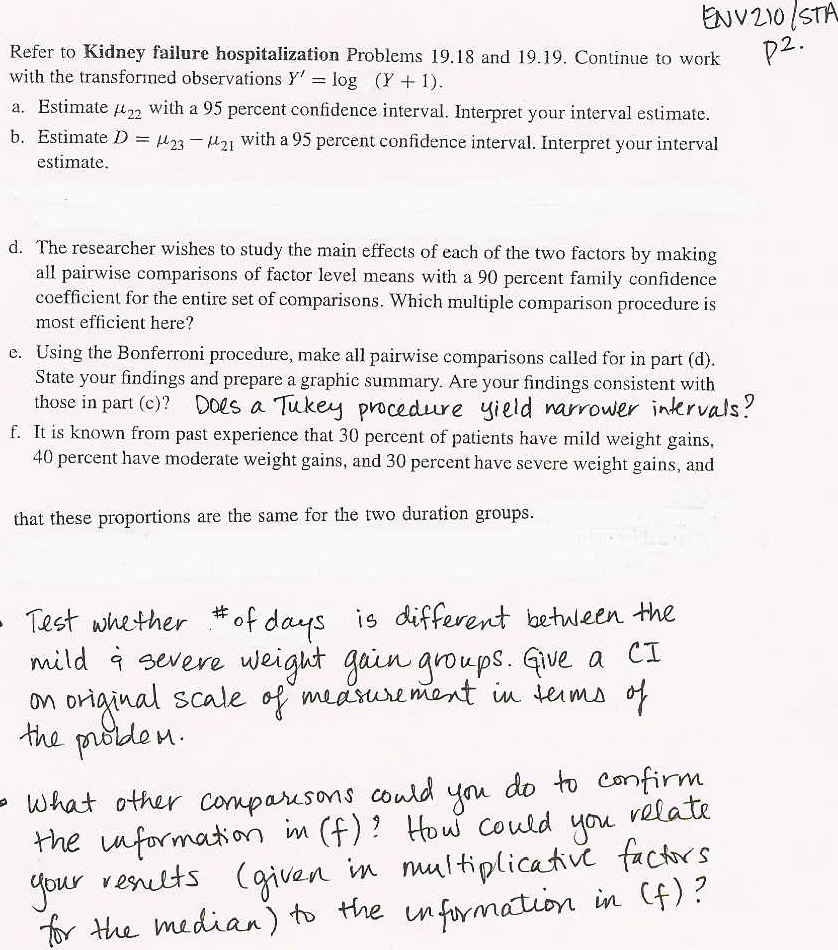 ENV210/STA
p2.
Refer to Kidney failure hospitalization Problems 19.18 and 19.19. Continue to work
with the transformed observations Y′ = log (Y + 1).
a. Estimate μ22 with a 95 percent confidence interval. Interpret your interval estimate.
b. Estimate D = μ23 − μ21 with a 95 percent confidence interval. Interpret your interval
estimate.
d. The researcher wishes to study the main effects of each of the two factors by making
all pairwise comparisons of factor level means with a 90 percent family confidence
coefficient for the entire set of comparisons. Which multiple comparison procedure is
most efficient here?
e. Using the Bonferroni procedure, make all pairwise comparisons called for in part (d).
State your findings and prepare a graphic summary. Are your findings consistent with
those in part (c)? Does a Tukey procedure yield narrower intervals?
f. It is known from past experience that 30 percent of patients have mild weight gains,
40 percent have moderate weight gains, and 30 percent have severe weight gains, and
that these proportions are the same for the two duration groups.
• Test whether # of days is different between the
mild & severe weight gain groups. Give a CI
on original scale of measurement in terms of
the problem.
• What other comparisons could you do to confirm
the information in (f)? How could you relate
your results (given in multiplicative factors
for the median) to the information in (f)?